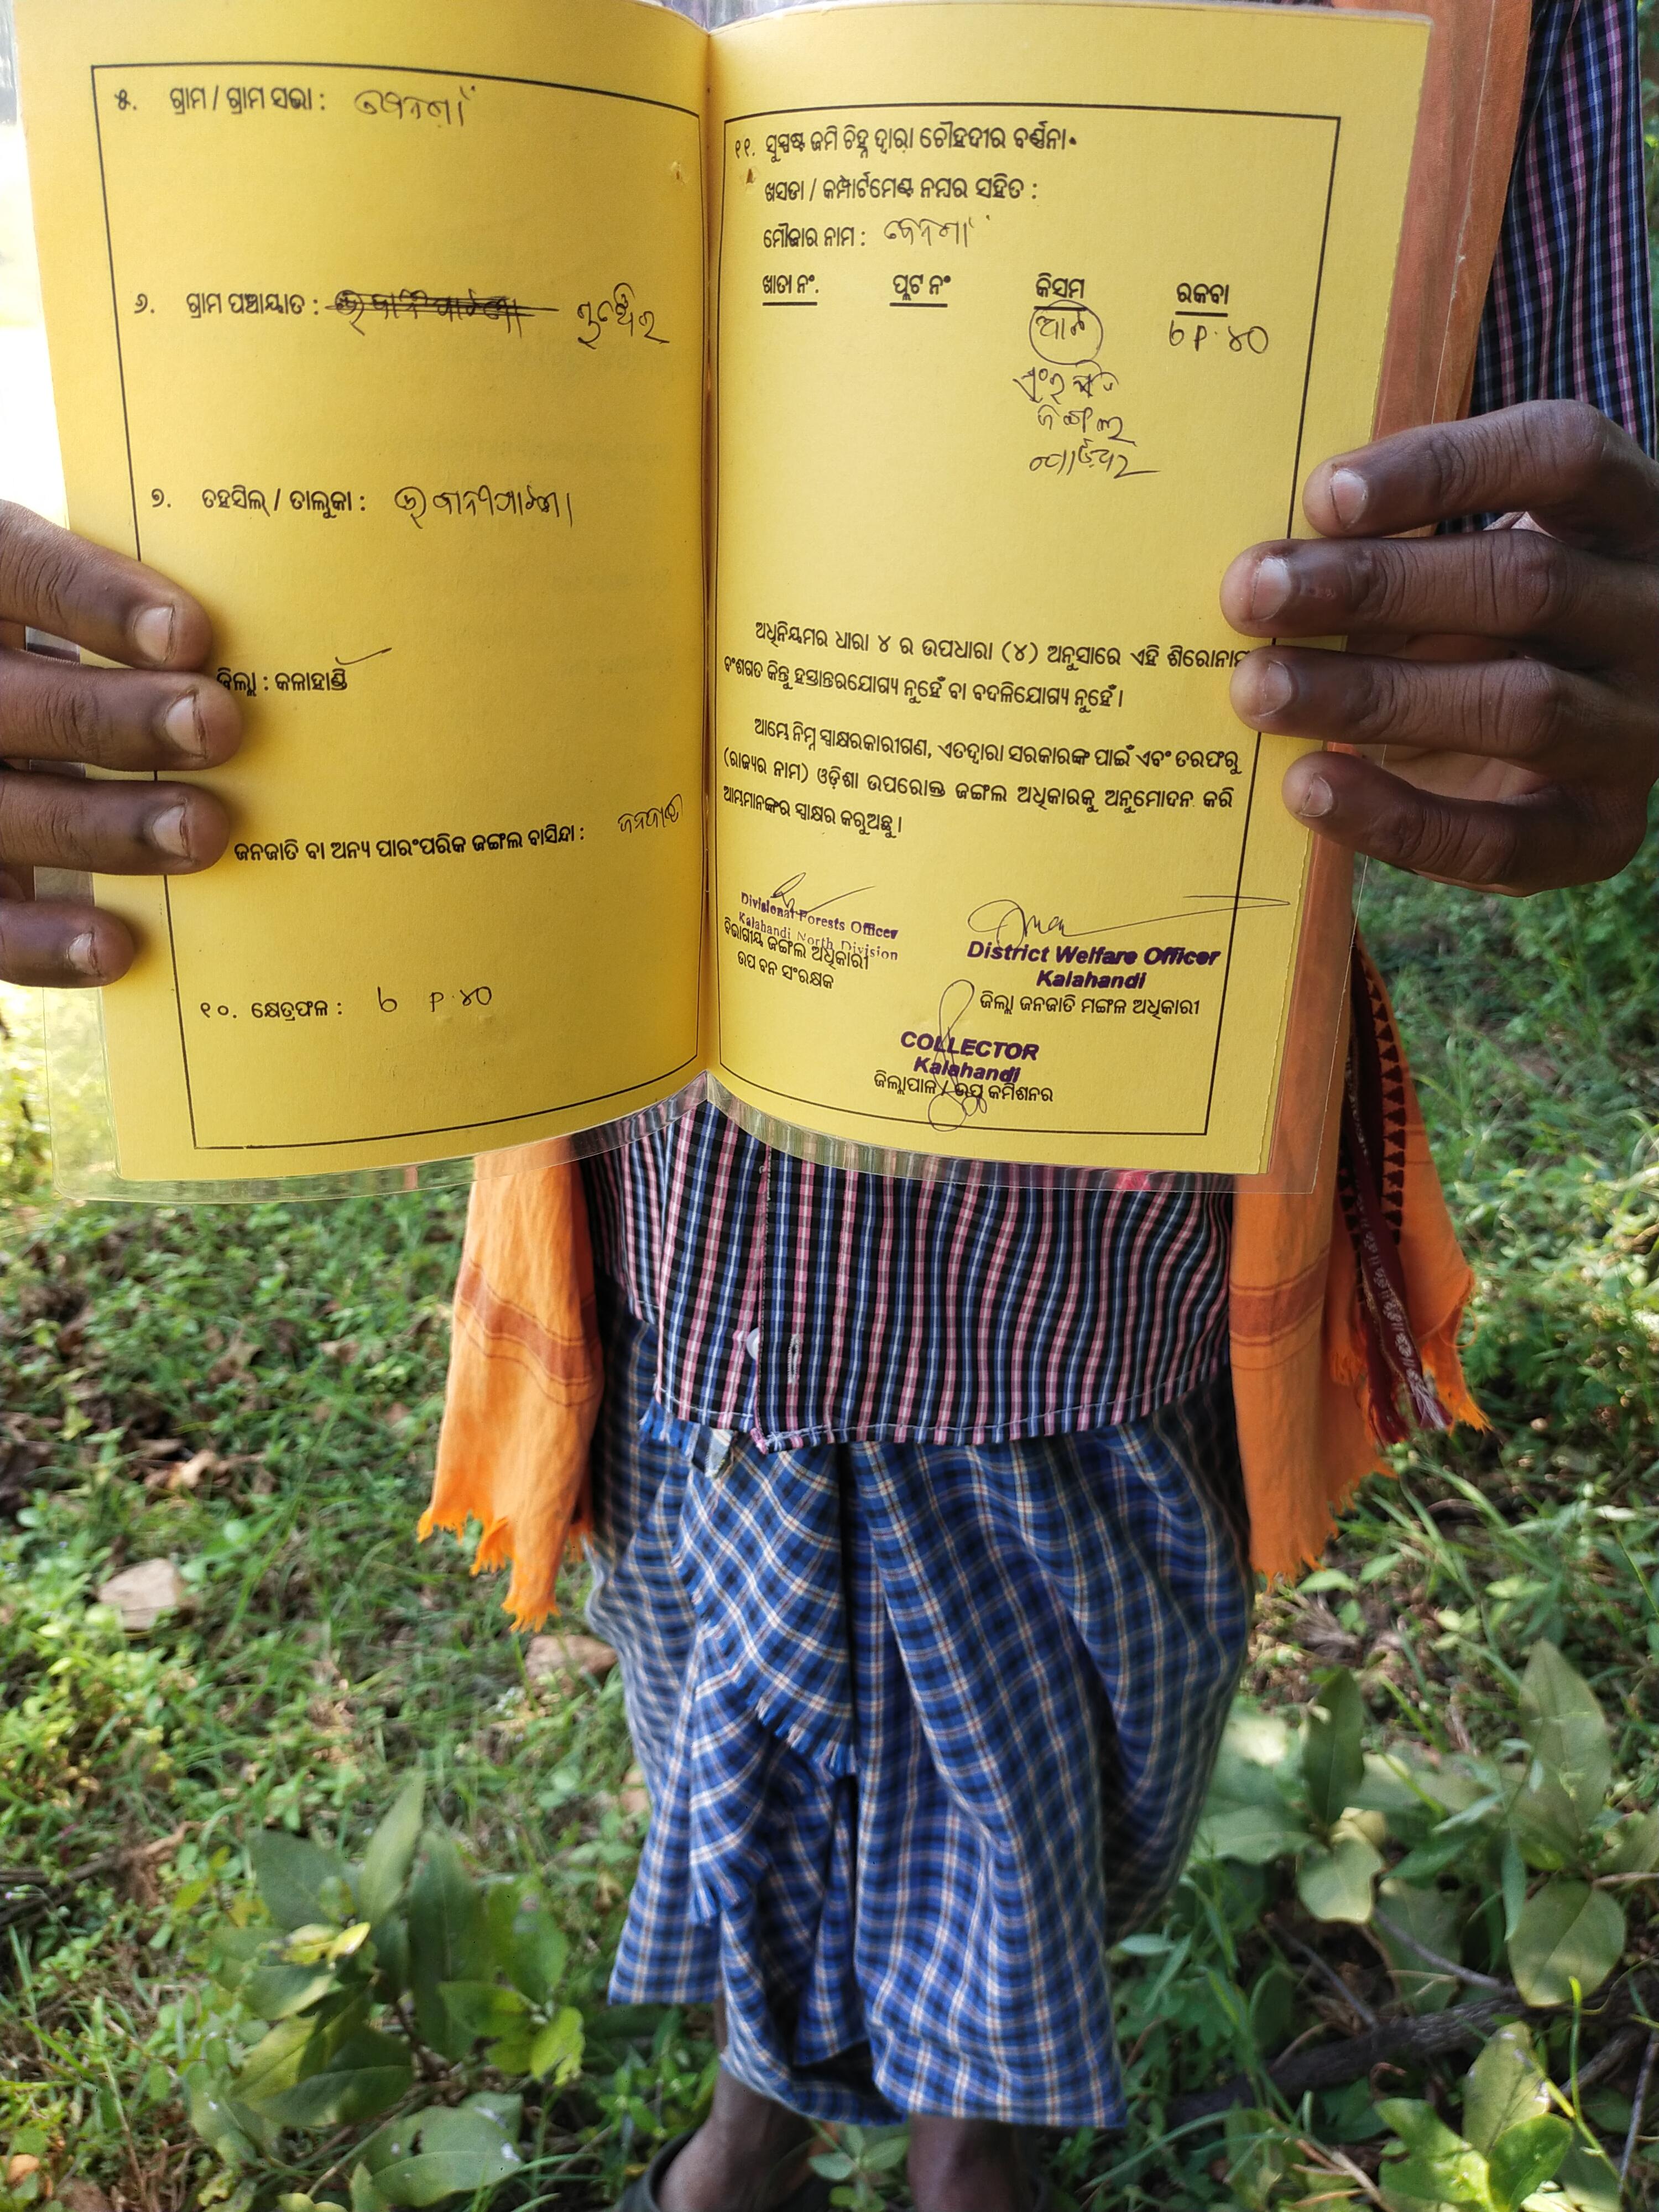 ୫. ଗ୍ରାମ / ଗ୍ରାମ ସଭା :
୬. ଗ୍ରାମ ପଞ୍ଚାୟାତ :
୭. ତହସିଲ୍ / ତାଲୁକା : ଭବାନୀପାଟଣା
ଜିଲ୍ଲା : କଳାହାଣ୍ଡି
ଜନଜାତି ବା ଅନ୍ୟ ପାରଂପରିକ ଜଙ୍ଗଲ ବାସିନ୍ଦା : ଜନଜାତି
୧୦. କ୍ଷେତ୍ରଫଳ :
୧୧. ସୁସ୍ପଷ୍ଟ ଜମି ଚିହ୍ନ ଦ୍ୱାରା ଚୌହଦୀର ବର୍ଣ୍ଣନା.
ଖସଡା / କମ୍ପାର୍ଟମେଣ୍ଟ ନମ୍ବର ସହିତ :
ମୌଜାର ନାମ :
ଖାତା ନଂ. ପ୍ଲଟ ନଂ କିସମ ରକବା
ଜଙ୍ଗଲ
ଅଧିନିୟମର ଧାରା ୪ ର ଉପଧାରା (୪) ଅନୁସାରେ ଏହି ଶିରୋନାମ
ବଂଶଗତ କିନ୍ତୁ ହସ୍ତାନ୍ତରଯୋଗ୍ୟ ନୁହେଁ ବା ବଦଳିଯୋଗ୍ୟ ନୁହେଁ ।
ଆମ୍ଭେ ନିମ୍ନ ସ୍ୱାକ୍ଷରକାରୀଗଣ, ଏତଦ୍ୱାରା ସରକାରଙ୍କ ପାଇଁ ଏବଂ ତରଫରୁ
(ରାଜ୍ୟର ନାମ) ଓଡ଼ିଶା ଉପରୋକ୍ତ ଜଙ୍ଗଲ ଅଧିକାରକୁ ଅନୁମୋଦନ କରି
ଆମ୍ଭମାନଙ୍କର ସ୍ୱାକ୍ଷର କରୁଅଛୁ ।
Divisional Forests Officer
Kalahandi North Division
ବିଭାଗୀୟ ଜଙ୍ଗଲ ଅଧିକାରୀ
ଉପ ବନ ସଂରକ୍ଷକ
District Welfare Officer
Kalahandi
ଜିଲ୍ଲା ଜନଜାତି ମଙ୍ଗଳ ଅଧିକାରୀ
COLLECTOR
Kalahandi
ଜିଲ୍ଲାପାଳ / ଉପ କମିଶନର